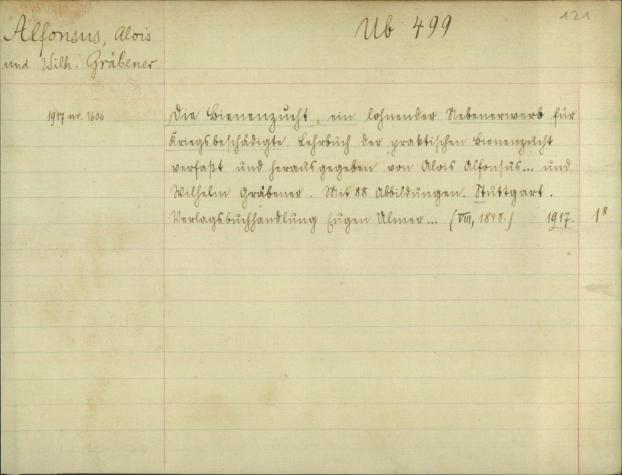 121
Alfonsus, Alois
und Wilh. Gräbener
Ub 499
1917 nr. 1606
Die Bienenzucht, ein lohnender Nebenerwerb für
Kriegsbeschädigte. Lehrbuch der praktischen Bienenzucht
verfaßt und herausgegeben von Alois Alfonsus... und
Wilhelm Gräbener. Mit 88 Abbildungen. Stuttgart.
Verlagsbuchhandlung Eugen Ulmer... (VIII, 184 S.) 1917. 1 8